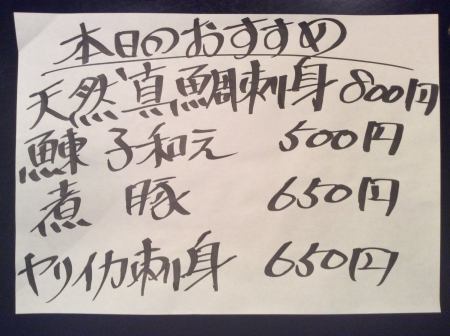 本日のおすすめ
天然真鯛刺身 800円
鰊 子和え 500円
煮 豚 650円
ヤリイカ刺身 650円